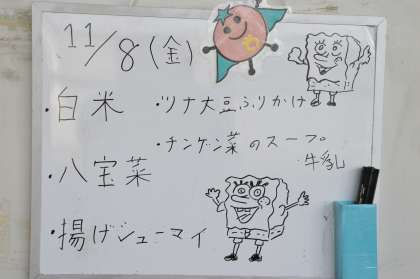 11/8(金)
・白米 ・ツナ大豆ふりかけ
・チンゲン菜のスープ
・牛乳
・八宝菜
・揚げシューマイ